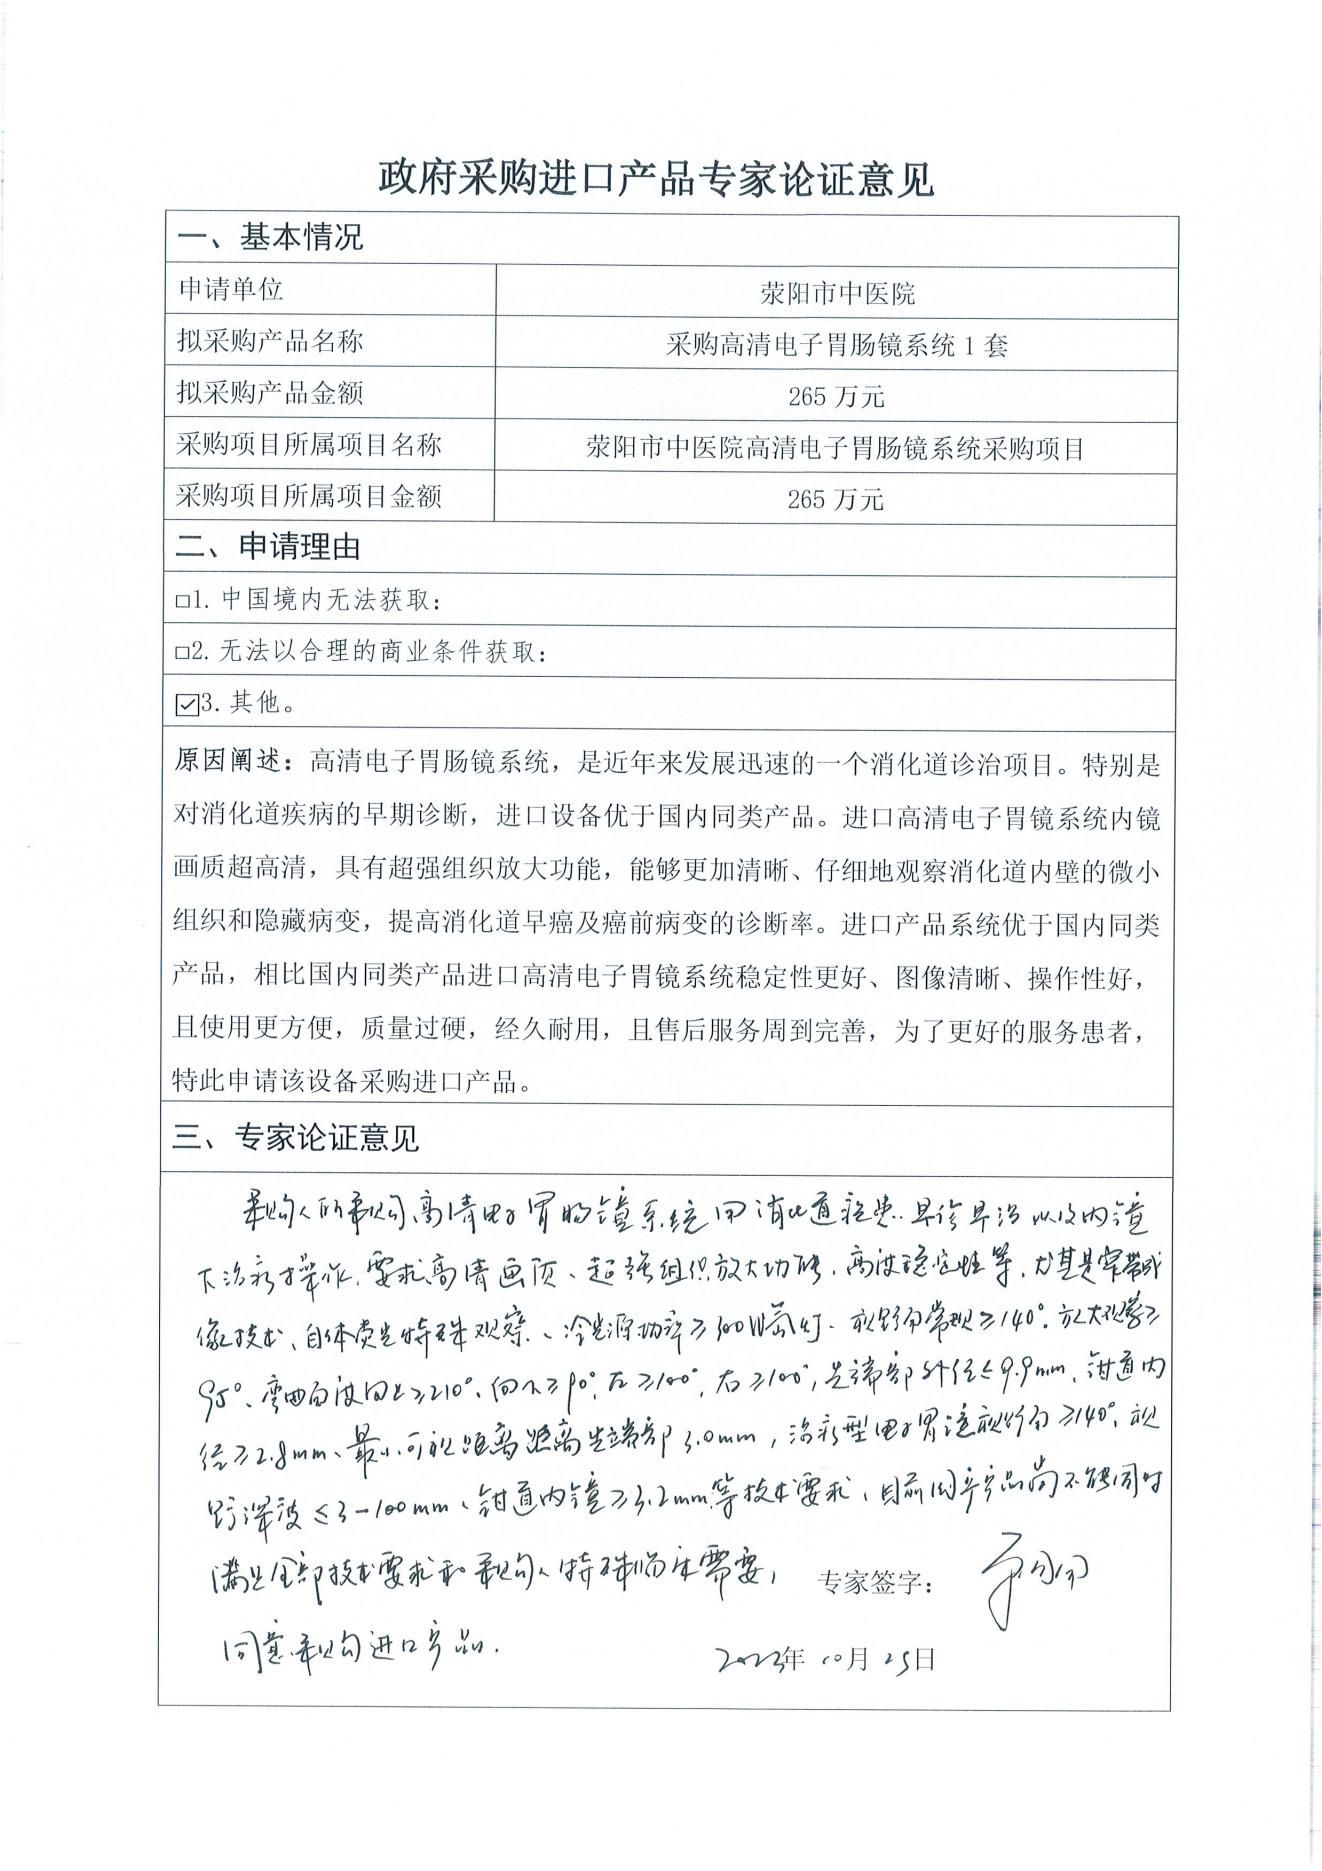 政府采购进口产品专家论证意见
一、基本情况
申请单位 荥阳市中医院
拟采购产品名称 采购高清电子胃肠镜系统1套
拟采购产品金额 265万元
采购项目所属项目名称 荥阳市中医院高清电子胃肠镜系统采购项目
采购项目所属项目金额 265万元
二、申请理由
□1.中国境内无法获取：
□2.无法以合理的商业条件获取：
☑3.其他。
原因阐述：高清电子胃肠镜系统，是近年来发展迅速的一个消化道诊治项目。特别是
对消化道疾病的早期诊断，进口设备优于国内同类产品。进口高清电子胃镜系统内镜
画质超高清，具有超强组织放大功能，能够更加清晰、仔细地观察消化道内壁的微小
组织和隐藏病变，提高消化道早癌及癌前病变的诊断率。进口产品系统优于国内同类
产品，相比国内同类产品进口高清电子胃镜系统稳定性更好、图像清晰、操作性好，
且使用更方便，质量过硬，经久耐用，且售后服务周到完善，为了更好的服务患者，
特此申请该设备采购进口产品。
三、专家论证意见
采购人所采购高清电子胃肠镜系统用消化道疾患早诊早治以及内镜
下治疗操作，要求高清画质、超强组织放大功能，高度稳定性等，尤其是窄带成
像技术、自体荧光特殊观察、冷光源功率≥300W氙灯、视野角常规≥140°，放大观察≥
95°、弯曲角度向上≥210°、向下≥90°，左≥100°，右≥100°，先端部外径≤9.9mm、钳道内
径≥2.8mm、最小可视距离距离先端部3.0mm，治疗型电子胃镜视野角≥140°，视
野深度≤3-100mm、钳道内镜≥3.2mm等技术要求，目前国产产品尚不能同时
满足全部技术要求和采购人特殊临床需要，
专家签字：
同意采购进口产品。
2023年10月25日